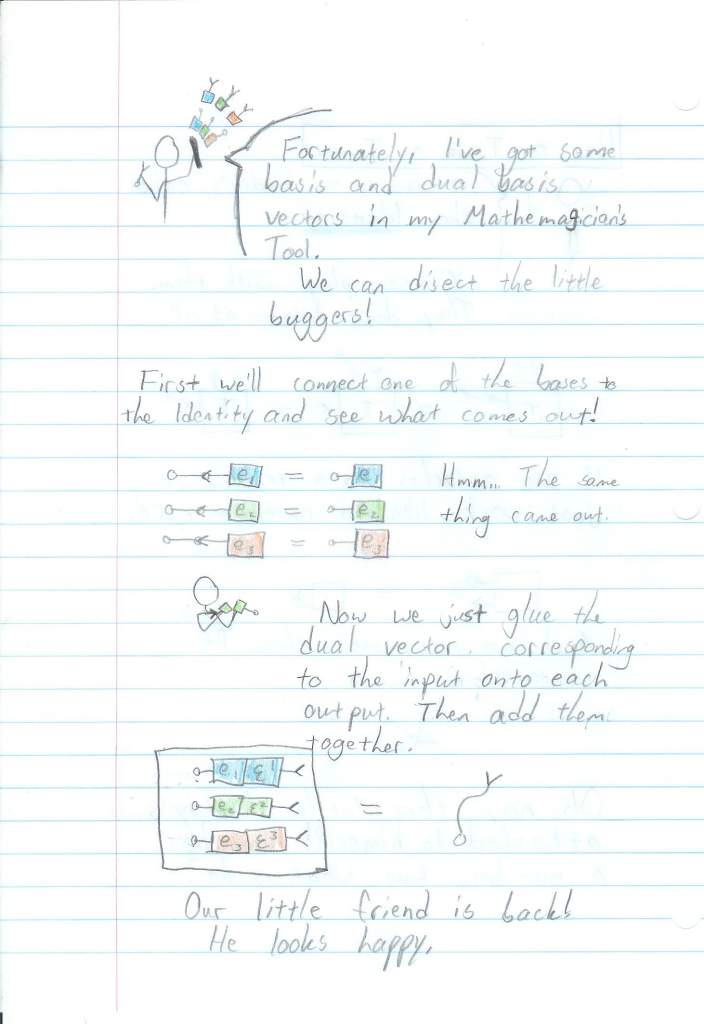 Fortunately, I've got some
basis and dual basis
vectors in my Mathemagician's
Tool.
We can disect the little
buggers!
First we'll connect one of the bases to
the Identity and see what comes out!
e1 = e1
Hmm... The same
e2 = e2
thing came out.
e3 = e3
Now we just glue the
dual vector corresponding
to the input onto each
output. Then add them
together.
e1 ε1
e2 ε2 =
e3 ε3
Our little friend is back!
He looks happy.